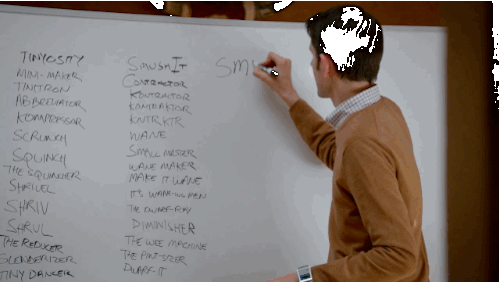 TINYOSITY
MINI-MAKER
TINITRON
ABBREVIATOR
KOMPRESSOR
SCRUNCH
SQUINCH
THE SQUINCHER
SHRIVEL
SHRIV
SHRVL
THE REDUCER
SLENDERIZER
TINY DANCER
SMUSH IT
CONTRACTOR
KONTRACTOR
KONTRAKTOR
KNTRKTR
WANE
SMALL MASTER
WANE MAKER
MAKE IT WANE
IT'S WANE-ING MEN
DIMINISHER
THE WEE MACHINE
THE PINT-SIZER
DWARF-IT
SM